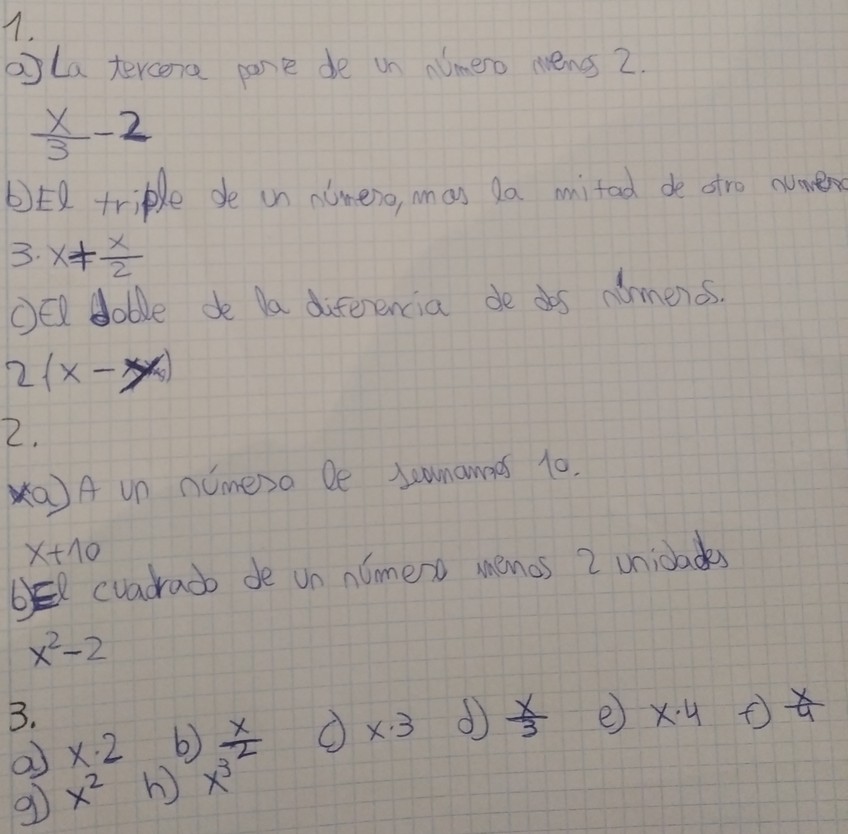 1.
a) La tercera parte de un número menos 2.
x/3 - 2
b) El triple de un número, mas la mitad de otro numero
3·x + x/2
c) El doble de la diferencia de dos números.
2(x -
2.
a) A un número le sumamos 10.
x+10
b) El cuadrado de un número menos 2 unidades
x²-2
3.
a) x·2 b) x/2 c) x·3 d) x/3 e) x·4 f) x/4
g) x² h) x³